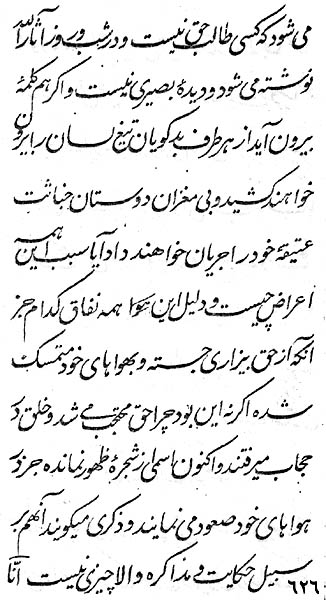 می شود که کسی طالب حق نیست و در شب و روز آثار الله
نوشته می شود و دیدهٔ بصیری نیست و اگر هم کلمهٔ
بیرون آید از هر طرف بدگویان تیغ لسان را بیرون
خواهند کشید و بی مغزان دوستان خباثت
عتیقهٔ خود را جریان خواهند داد آیا سبب این همه
اعراض چیست و دلیل این همه نفاق کدام جز
آنکه از حق بیزاری جسته و بهواهای خود متمسک
شده اگر نه این بود چرا حق محتجب می شد و خلق در
حجاب میرفتند و اکنون اسمی از شجرهٔ ظهور نمانده جز در
هواهای خود صعود می نمایند و ذکری میگویند آنهم بر
سبیل حکایت و مذاکره و الا چیزی نیست انّا
۶۲۶